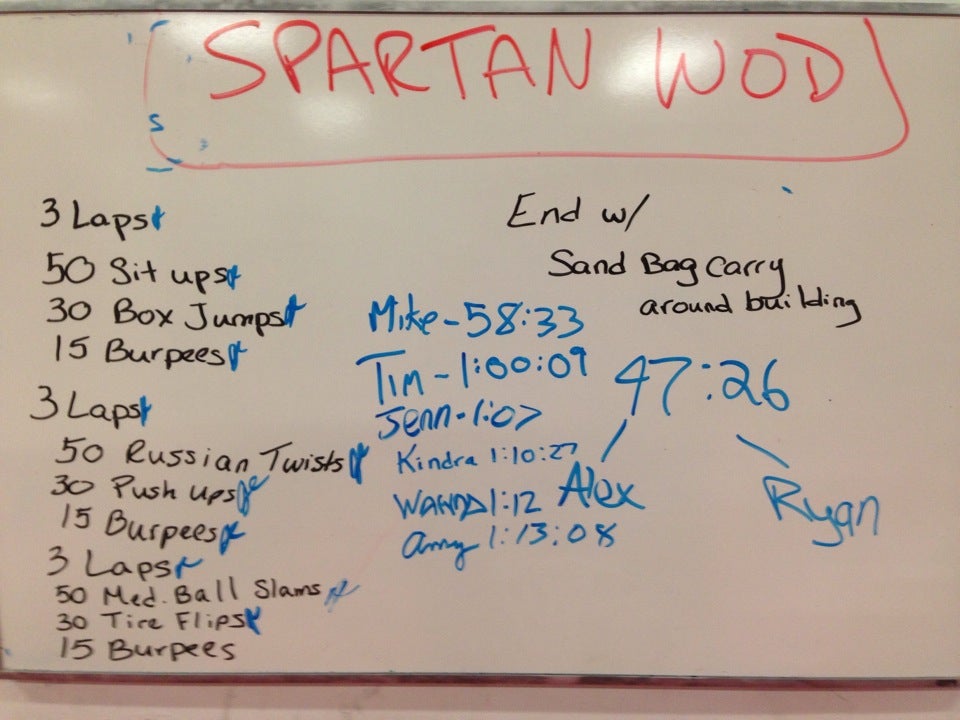 SPARTAN WOD
3 Laps
50 Sit ups
30 Box Jumps
15 Burpees
3 Laps
50 Russian Twists
30 Push Ups
15 Burpees
3 Laps
50 Med. Ball Slams
30 Tire Flips
15 Burpees
End w/
Sand Bag Carry
around building
Mike - 58:33
Tim - 1:00:09
Jenn - 1:07
Kindra 1:10:27
1:12
Amy 1:13:08
47:26
Alex
Ryan